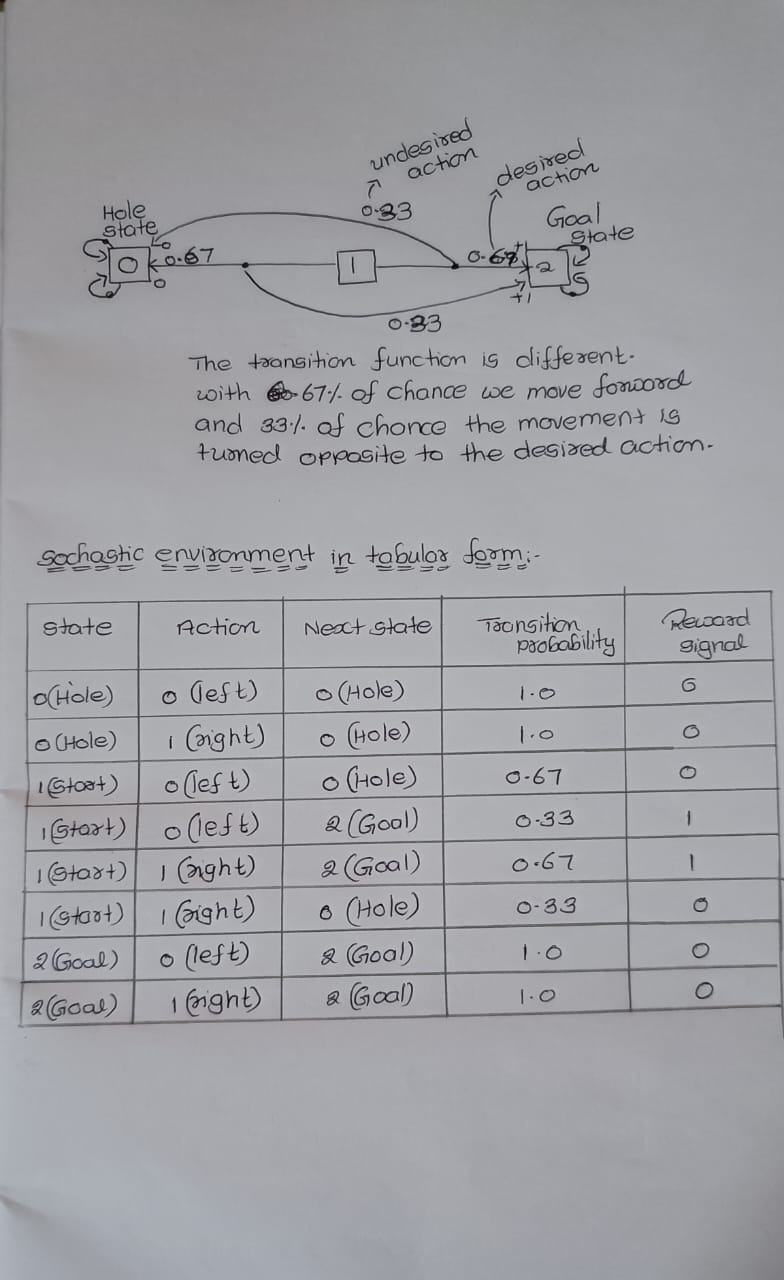 undesired
action
desired
action
0.33
Hole
state
Goal
state
0
0.67
0
0
1
0.67
+1
2
+1
0.33
The transition function is different.
with 67% of chance we move forword
and 33% of chance the movement is
turned opposite to the desired action.
Sochastic environment in tabular form:-
State Action Next state Transition probability Reward signal
0(Hole) 0 (left) 0 (Hole) 1.0 0
0 (Hole) 1 (right) 0 (Hole) 1.0 0
1(Start) 0(left) 0 (Hole) 0.67 0
1(Start) 0(left) 2 (Goal) 0.33 1
1(Start) 1 (right) 2 (Goal) 0.67 1
1(Start) 1 (right) 0 (Hole) 0.33 0
2(Goal) 0 (left) 2 (Goal) 1.0 0
2(Goal) 1 (right) 2 (Goal) 1.0 0